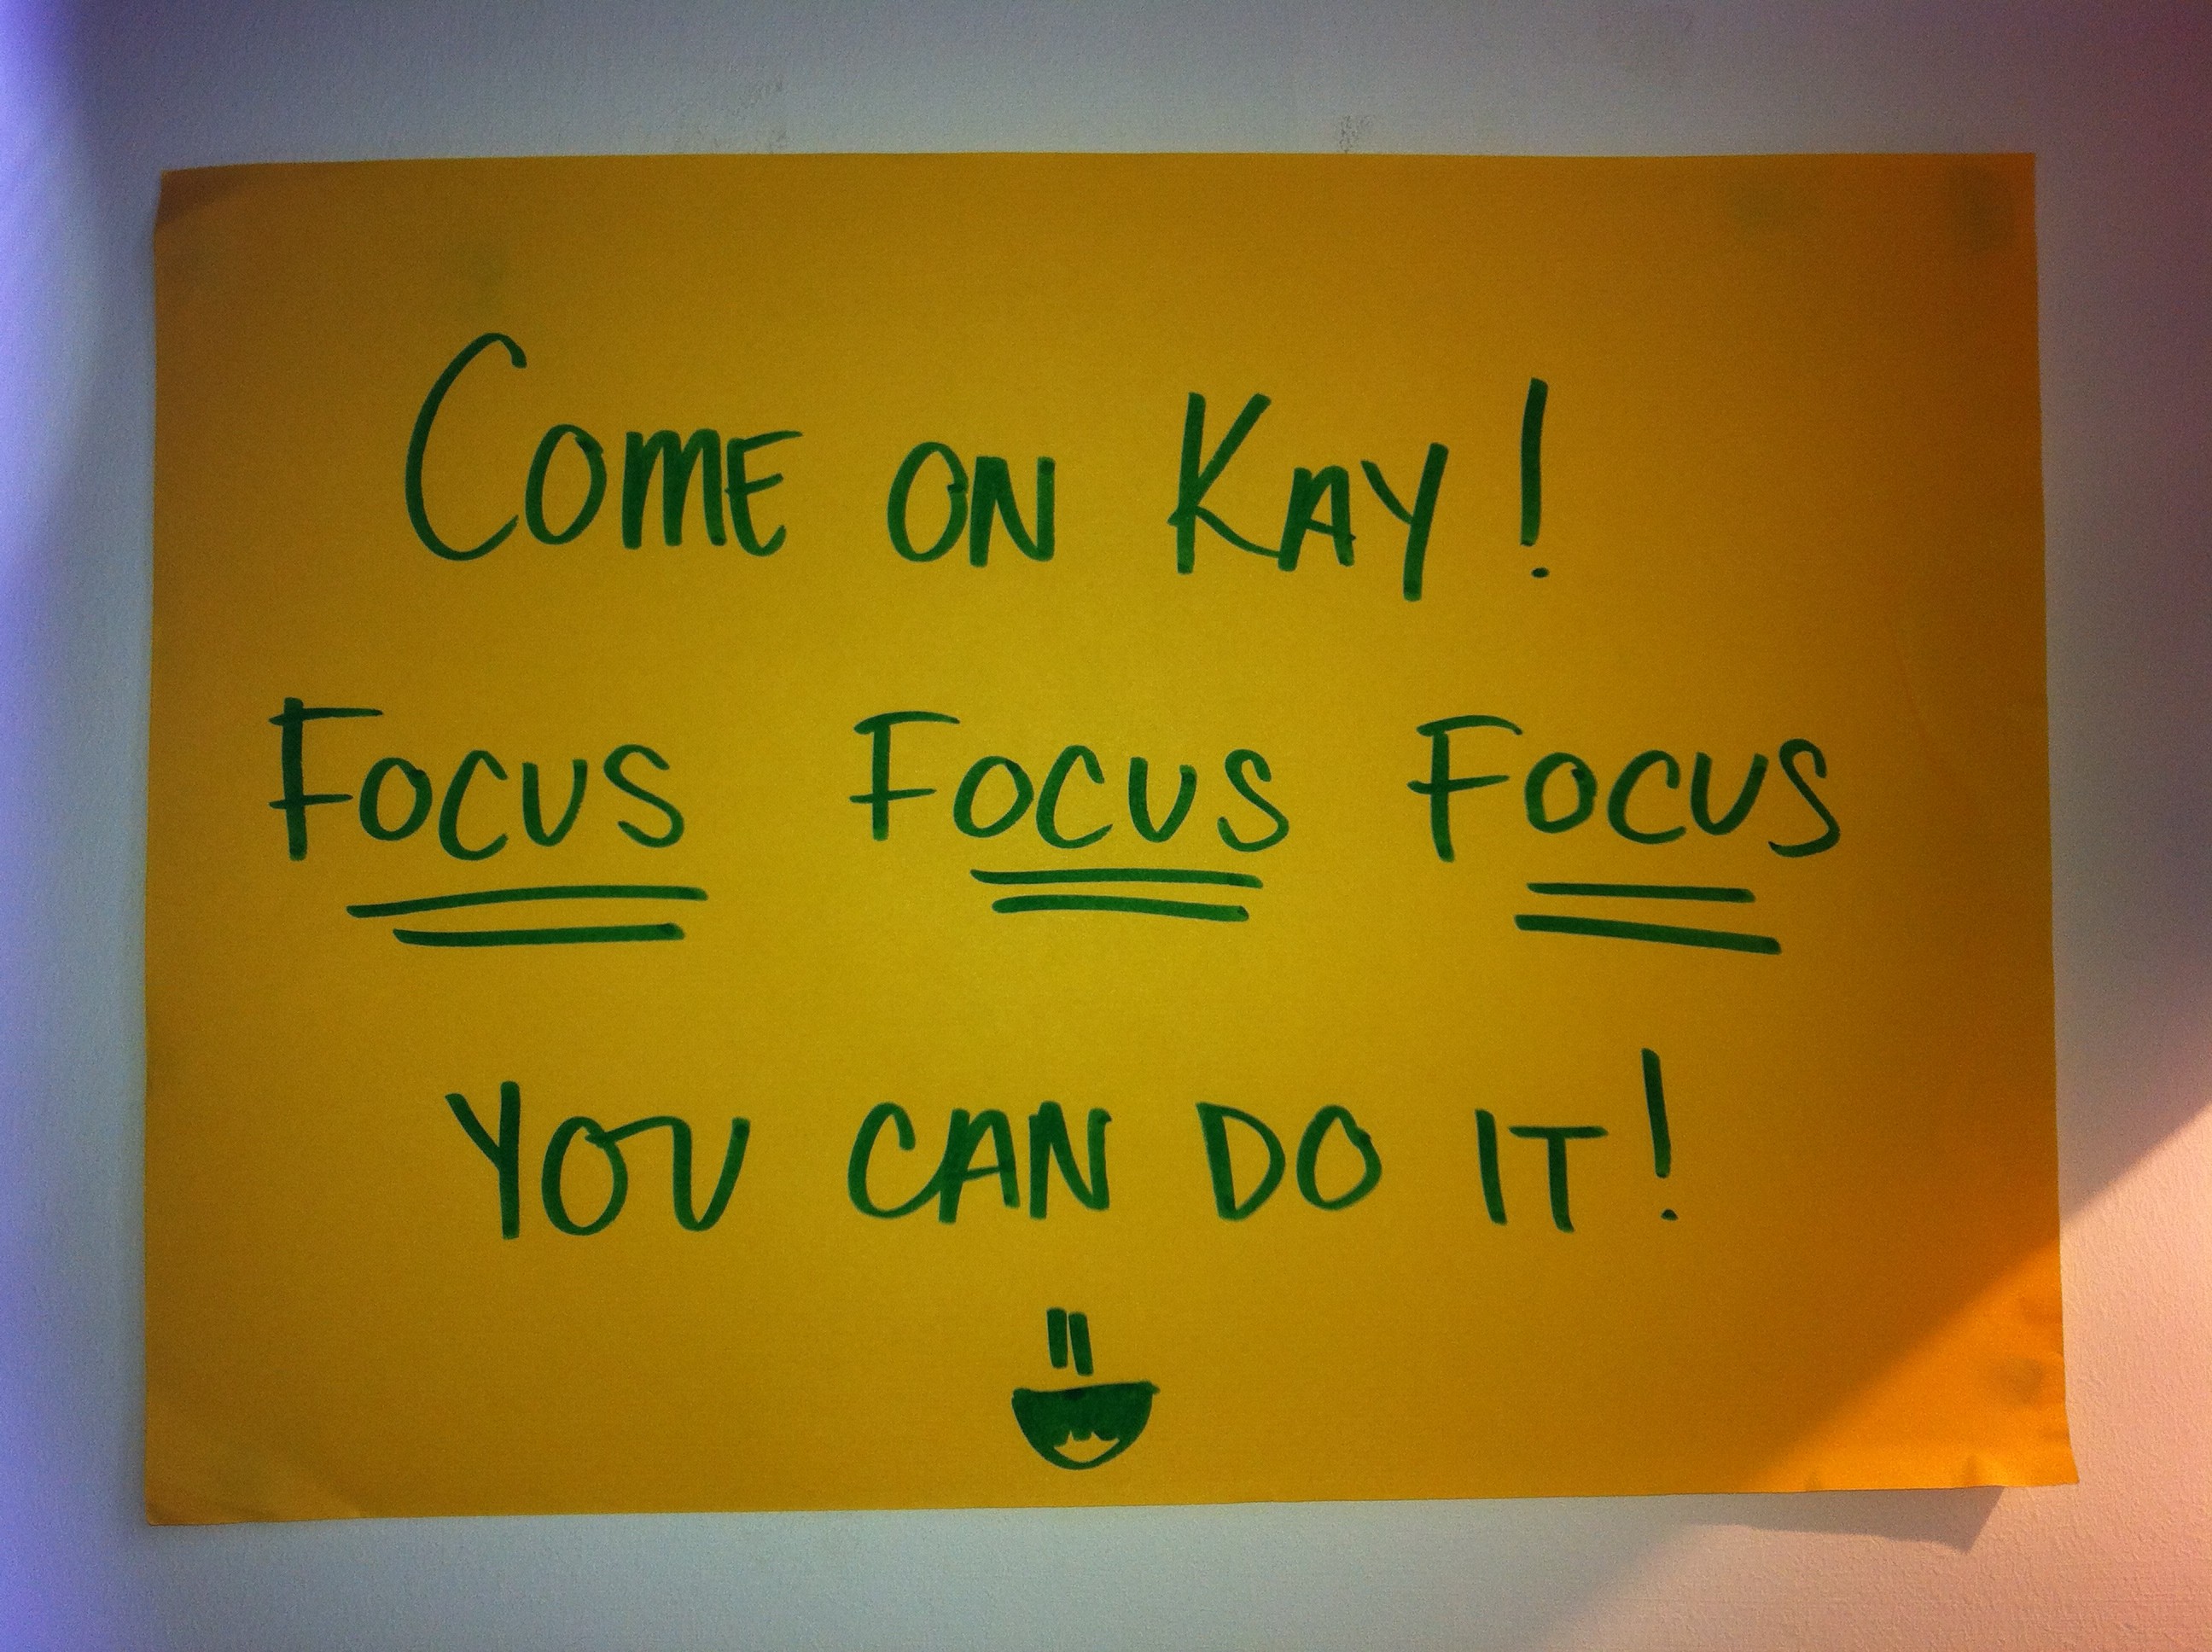 COME ON KAY!
FOCUS FOCUS FOCUS
YOU CAN DO IT!